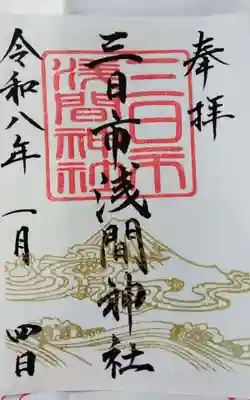 奉拝
三日市
浅間神社
三日市浅間神社
令和八年 一月 四日